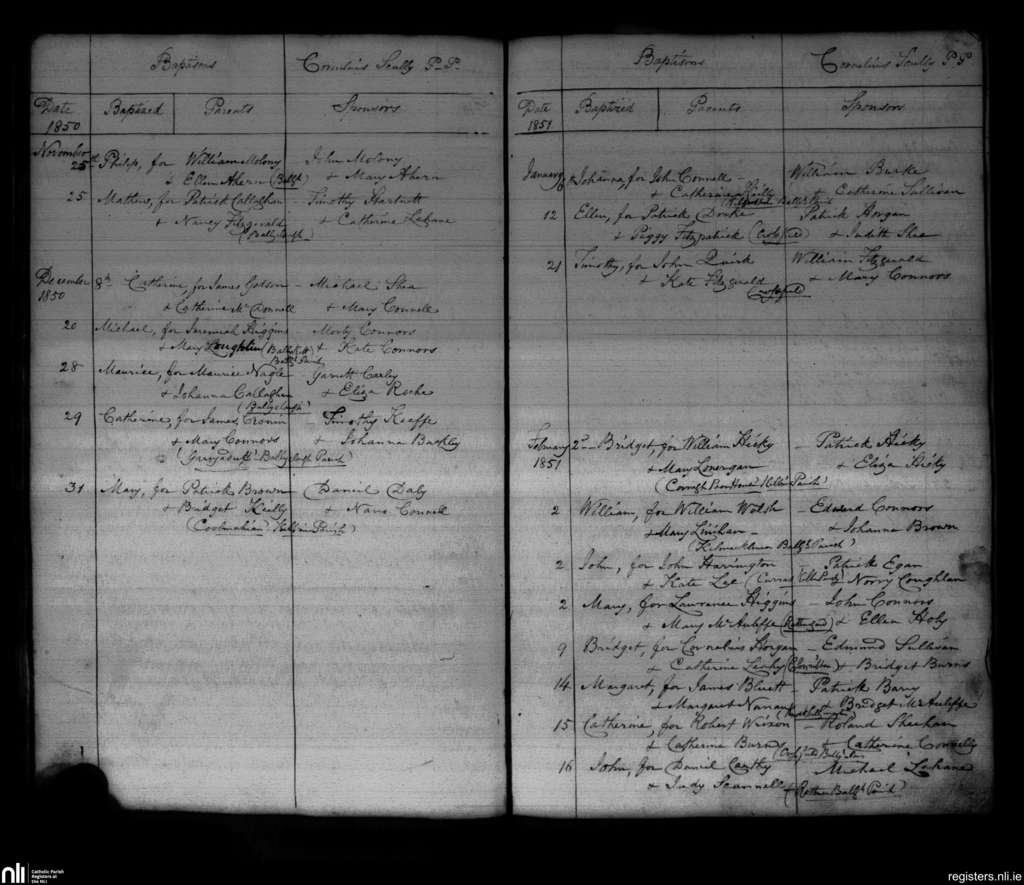 Baptisms Cornelius Scully P.P.
Date Baptized Parents Sponsors
1850
November
25th Philip, for William Molony John Molony
& Ellen Ahern (Ballyh) & Mary Ahern
25 Mathew, for Patrick Callaghan - Timothy Hartnett
& Nancy Fitzgerald & Catherine Lehane
(Ballyclough)
December 8th Catherine, for James Godson - Michael Shea
1850 & Catherine McDonnell & Mary Connell
20 Michael, for Jeremiah Higgins - Morty Connors
& Mary Loughlin & Kate Connors
28 Maurice, for Maurice Nagle Garrett Curley
& Johanna Callaghan & Eliza Roche
(Ballyclough)
29 Catherine for James Cronin - Timothy Keeffe
& Mary Connors & Johanna Buckley
(Garryduff Ballyclough Parish)
31 Mary, for Patrick Brown Daniel Daly
& Bridget Reilly & Nano Connell
Baptisms Cornelius Scully P.P.
Date Baptized Parents Sponsors
1851
January 6th Johanna, for John Connell - William Burke
& Catherine Reilly & Catherine Sullivan
12 Ellen, for Patrick Drake Patrick Horgan
& Peggy Fitzpatrick & Judith Shea
21 Timothy, for John Quirk William Fitzgerald
& Kate Fitzgerald & Mary Connors
February 2d - Bridget, for William Hicky - Patrick Hicky
1851 & Mary Lonergan & Eliza Hicky
2 William, for William Walsh - Edward Connors
& Mary Linehan - & Johanna Brown
2 John, for John Harrington - Patrick Egan
& Kate Lee & Norry Coughlan
2 Mary, for Lawrence Higgins - John Connors
& Mary McAuliffe & Ellen Holy
9 Bridget, for Cornelius Horgan - Edmund Sullivan
& Catherine Leahy & Bridget Burns
14 Margaret, for James Bluett - Patrick Barry
& Margaret & Bridget McAuliffe
15 Catherine, for Robert Wrixon - Roland Sheehan
& Catherine Burns & Catherine Connelly
16 John, for Daniel Carthy Michael Lehane
& Judy Scannell
nli Catholic Parish
Registers at
the NLI
registers.nli.ie